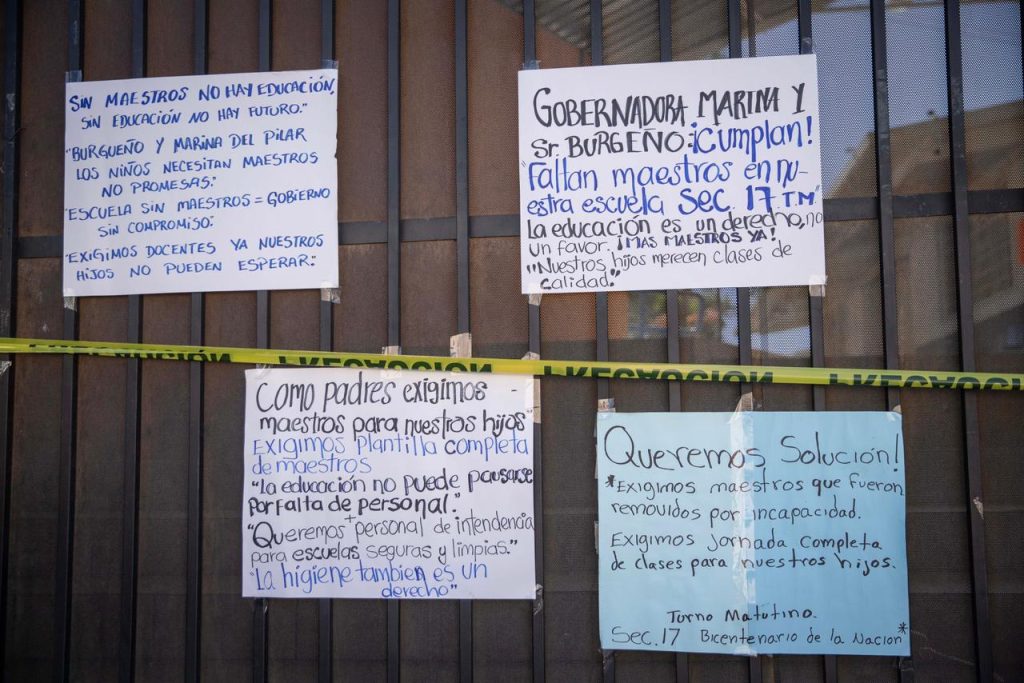 SIN MAESTROS NO HAY EDUCACIÓN,
SIN EDUCACIÓN NO HAY FUTURO."
"BURGUEÑO Y MARINA DEL PILAR
LOS NIÑOS NECESITAN MAESTROS
NO PROMESAS."
"ESCUELA SIN MAESTROS = GOBIERNO
SIN COMPROMISO."
"EXIGIMOS DOCENTES YA NUESTROS
HIJOS NO PUEDEN ESPERAR."
GOBERNADORA MARINA Y
Sr. BURGEÑO: ¡Cumplan!
"Faltan maestros en nu-
estra escuela Sec. 17 T.M"
La educación es un derecho, no
un favor. ¡MAS MAESTROS YA!
"Nuestros hijos merecen clases de
calidad."
PRECAUCIÓN PRECAUCIÓN PRECAUCIÓN PRECAUCIÓN
Como padres exigimos
maestros para nuestros hijos"
Exigimos plantilla completa
de maestros
"La educación no puede pausarse
por falta de personal."
"Queremos + personal de intendencia
para escuelas seguras y limpias."
"La higiene tambien es un
derecho"
Queremos Solución!
*Exigimos maestros que fueron
removidos por incapacidad.
Exigimos Jornada Completa
de clases para nuestros hijos.
Turno Matutino.
Sec. 17 Bicentenario de la Nacion*